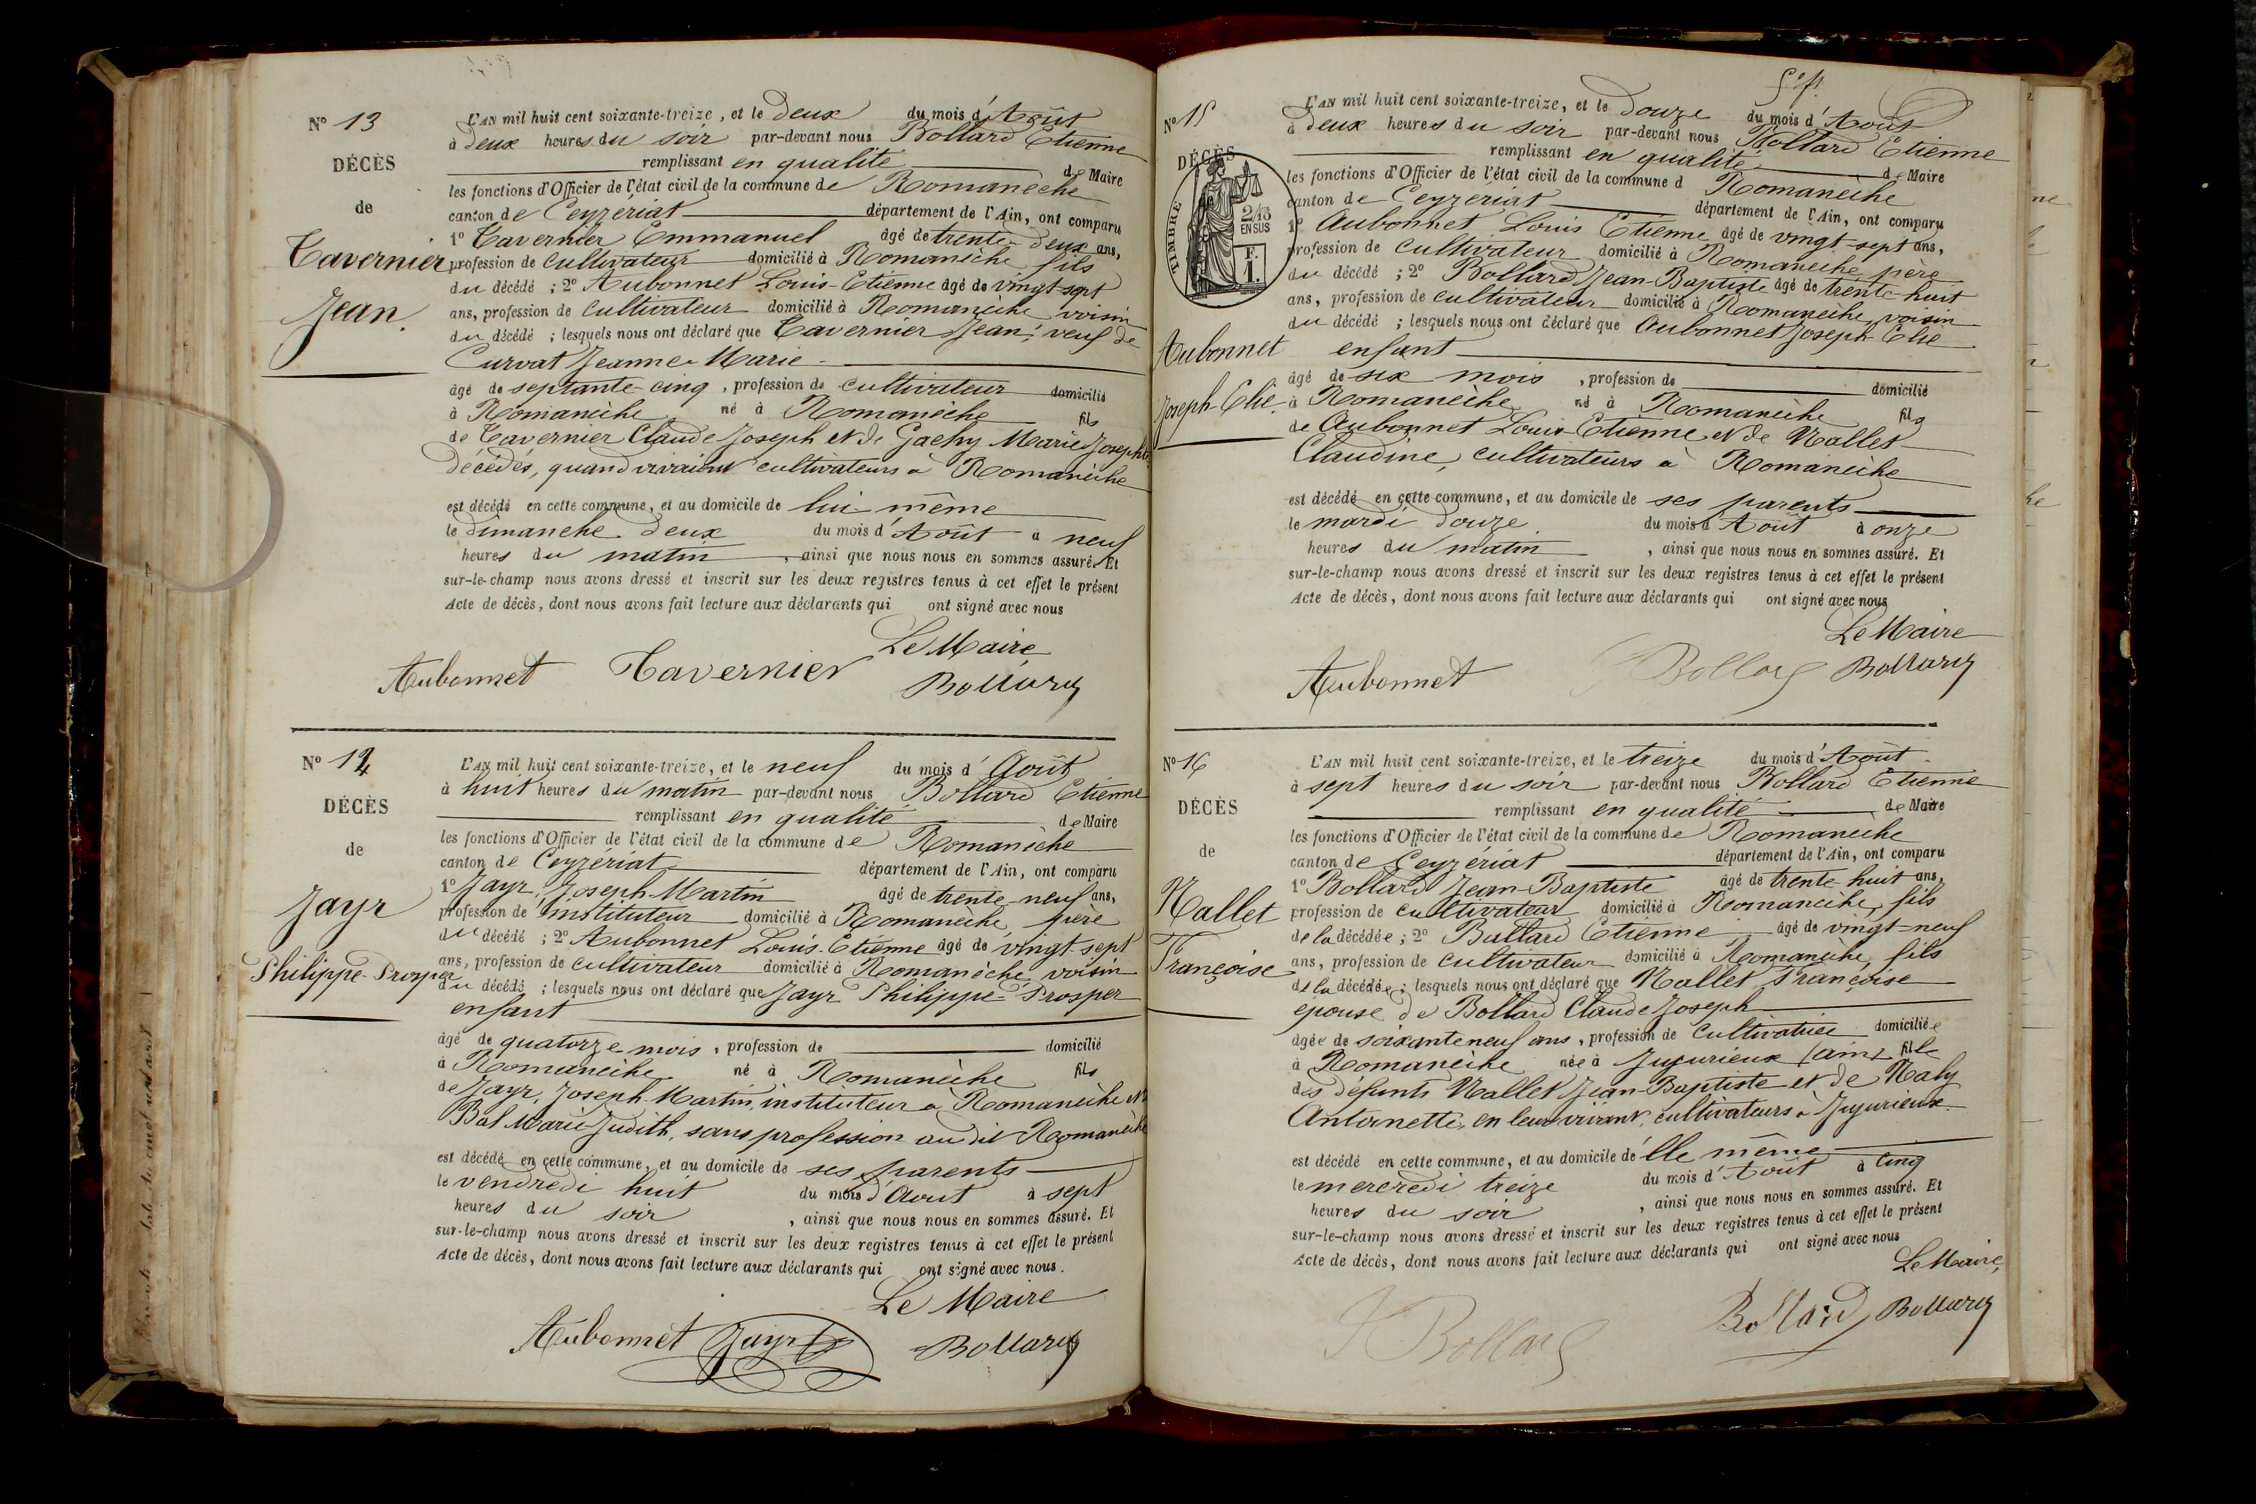 N° 13
DÉCÈS
de
Tavernier
Jean.
L'AN mil huit cent soixante-treize, et le deux du mois d'Août
à deux heures du soir par-devant nous Bollard Etienne
remplissant en qualité de Maire
les fonctions d'Officier de l'état civil de la commune de Romanèche
canton de Ceyzériat département de l'Ain, ont comparu
1° Tavernier Emmanuel âgé de trente-deux ans,
profession de cultivateur domicilié à Romanèche fils
du décédé ; 2° Aubonnet Louis-Etienne âgé de vingt-sept
ans, profession de cultivateur domicilié à Romanèche voisin
du décédé ; lesquels nous ont déclaré que Tavernier Jean, veuf de
Curvat Jeanne-Marie
âgé de septante-cinq, profession de cultivateur domicilié
à Romanèche né à Romanèche fils
de Tavernier Claude Joseph et de Gachy Marie Josephte
décédés, quand vivaient cultivateurs à Romanèche
est décédé en cette commune, et au domicile de lui-même
le dimanche deux du mois d'Août à neuf
heures du matin, ainsi que nous nous en sommes assuré. Et
sur-le-champ nous avons dressé et inscrit sur les deux registres tenus à cet effet le présent
Acte de décès, dont nous avons fait lecture aux déclarants qui ont signé avec nous
Le Maire
Aubonnet Tavernier Bollard
N° 14
DÉCÈS
de
Jayr
Philippe-Prosper
L'AN mil huit cent soixante-treize, et le neuf du mois d'Août
à huit heures du matin par-devant nous Bollard Etienne
remplissant en qualité de Maire
les fonctions d'Officier de l'état civil de la commune de Romanèche
canton de Ceyzériat département de l'Ain, ont comparu
1° Jayr, Joseph-Martin âgé de trente-neuf ans,
profession de instituteur domicilié à Romanèche, père
du décédé ; 2° Aubonnet Louis-Etienne âgé de vingt-sept
ans, profession de cultivateur domicilié à Romanèche voisin
du décédé ; lesquels nous ont déclaré que Jayr Philippe-Prosper
enfant
âgé de quatorze mois, profession de domicilié
à Romanèche né à Romanèche fils
de Jayr, Joseph-Martin, instituteur à Romanèche et
Bal Marie Judith, sans profession audit Romanèche
est décédé en cette commune, et au domicile de ses parents
le vendredi huit du mois d'Août à sept
heures du soir, ainsi que nous nous en sommes assuré. Et
sur-le-champ nous avons dressé et inscrit sur les deux registres tenus à cet effet le présent
Acte de décès, dont nous avons fait lecture aux déclarants qui ont signé avec nous.
Le Maire
Aubonnet Jayr Bollard
N° 15
DÉCÈS
TIMBRE
2/10
EN SUS
F.
1.
Aubonnet
Joseph-Elie.
L'AN mil huit cent soixante-treize, et le douze du mois d'Août
à deux heures du soir par-devant nous Bollard Etienne
remplissant en qualité de Maire
les fonctions d'Officier de l'état civil de la commune d Romanèche
canton de Ceyzériat département de l'Ain, ont comparu
1° Aubonnet Louis Etienne âgé de vingt-sept ans,
profession de cultivateur domicilié à Romanèche père
du décédé ; 2° Bollard Jean-Baptiste âgé de trente-huit
ans, profession de cultivateur domicilié à Romanèche, voisin
du décédé ; lesquels nous ont déclaré que Aubonnet Joseph-Elie
enfant
âgé de six mois, profession de domicilié
à Romanèche né à Romanèche fils
de Aubonnet Louis Etienne et de Nallet
Claudine, cultivateurs à Romanèche
est décédé en cette commune, et au domicile de ses parents
le mardi douze du mois d'Août à onze
heures du matin, ainsi que nous nous en sommes assuré. Et
sur-le-champ nous avons dressé et inscrit sur les deux registres tenus à cet effet le présent
Acte de décès, dont nous avons fait lecture aux déclarants qui ont signé avec nous
Le Maire
Aubonnet Bollard Bollard
N° 16
DÉCÈS
de
Nallet
Françoise
L'AN mil huit cent soixante-treize, et le treize du mois d'Août
à sept heures du soir par-devant nous Bollard Etienne
remplissant en qualité de Maire
les fonctions d'Officier de l'état civil de la commune de Romanèche
canton de Ceyzériat département de l'Ain, ont comparu
1° Bollard Jean-Baptiste âgé de trente-huit ans,
profession de cultivateur domicilié à Romanèche, fils
de la décédée ; 2° Bollard Etienne âgé de vingt-neuf
ans, profession de cultivateur domicilié à Romanèche, fils
de la décédée ; lesquels nous ont déclaré que Nallet Françoise
épouse de Bollard Claude Joseph
âgée de soixante neuf ans, profession de cultivatrice domiciliée
à Romanèche née à Jujurieux (Ain) fille
des défunts Nallet Jean-Baptiste et de Naly
Antoinette, en leur vivant, cultivateurs à Jujurieux.
est décédé en cette commune, et au domicile d'elle même
le mercredi treize du mois d'Août à cinq
heures du soir, ainsi que nous nous en sommes assuré. Et
sur-le-champ nous avons dressé et inscrit sur les deux registres tenus à cet effet le présent
Acte de décès, dont nous avons fait lecture aux déclarants qui ont signé avec nous
Le Maire,
Bollard Bollard Bollard